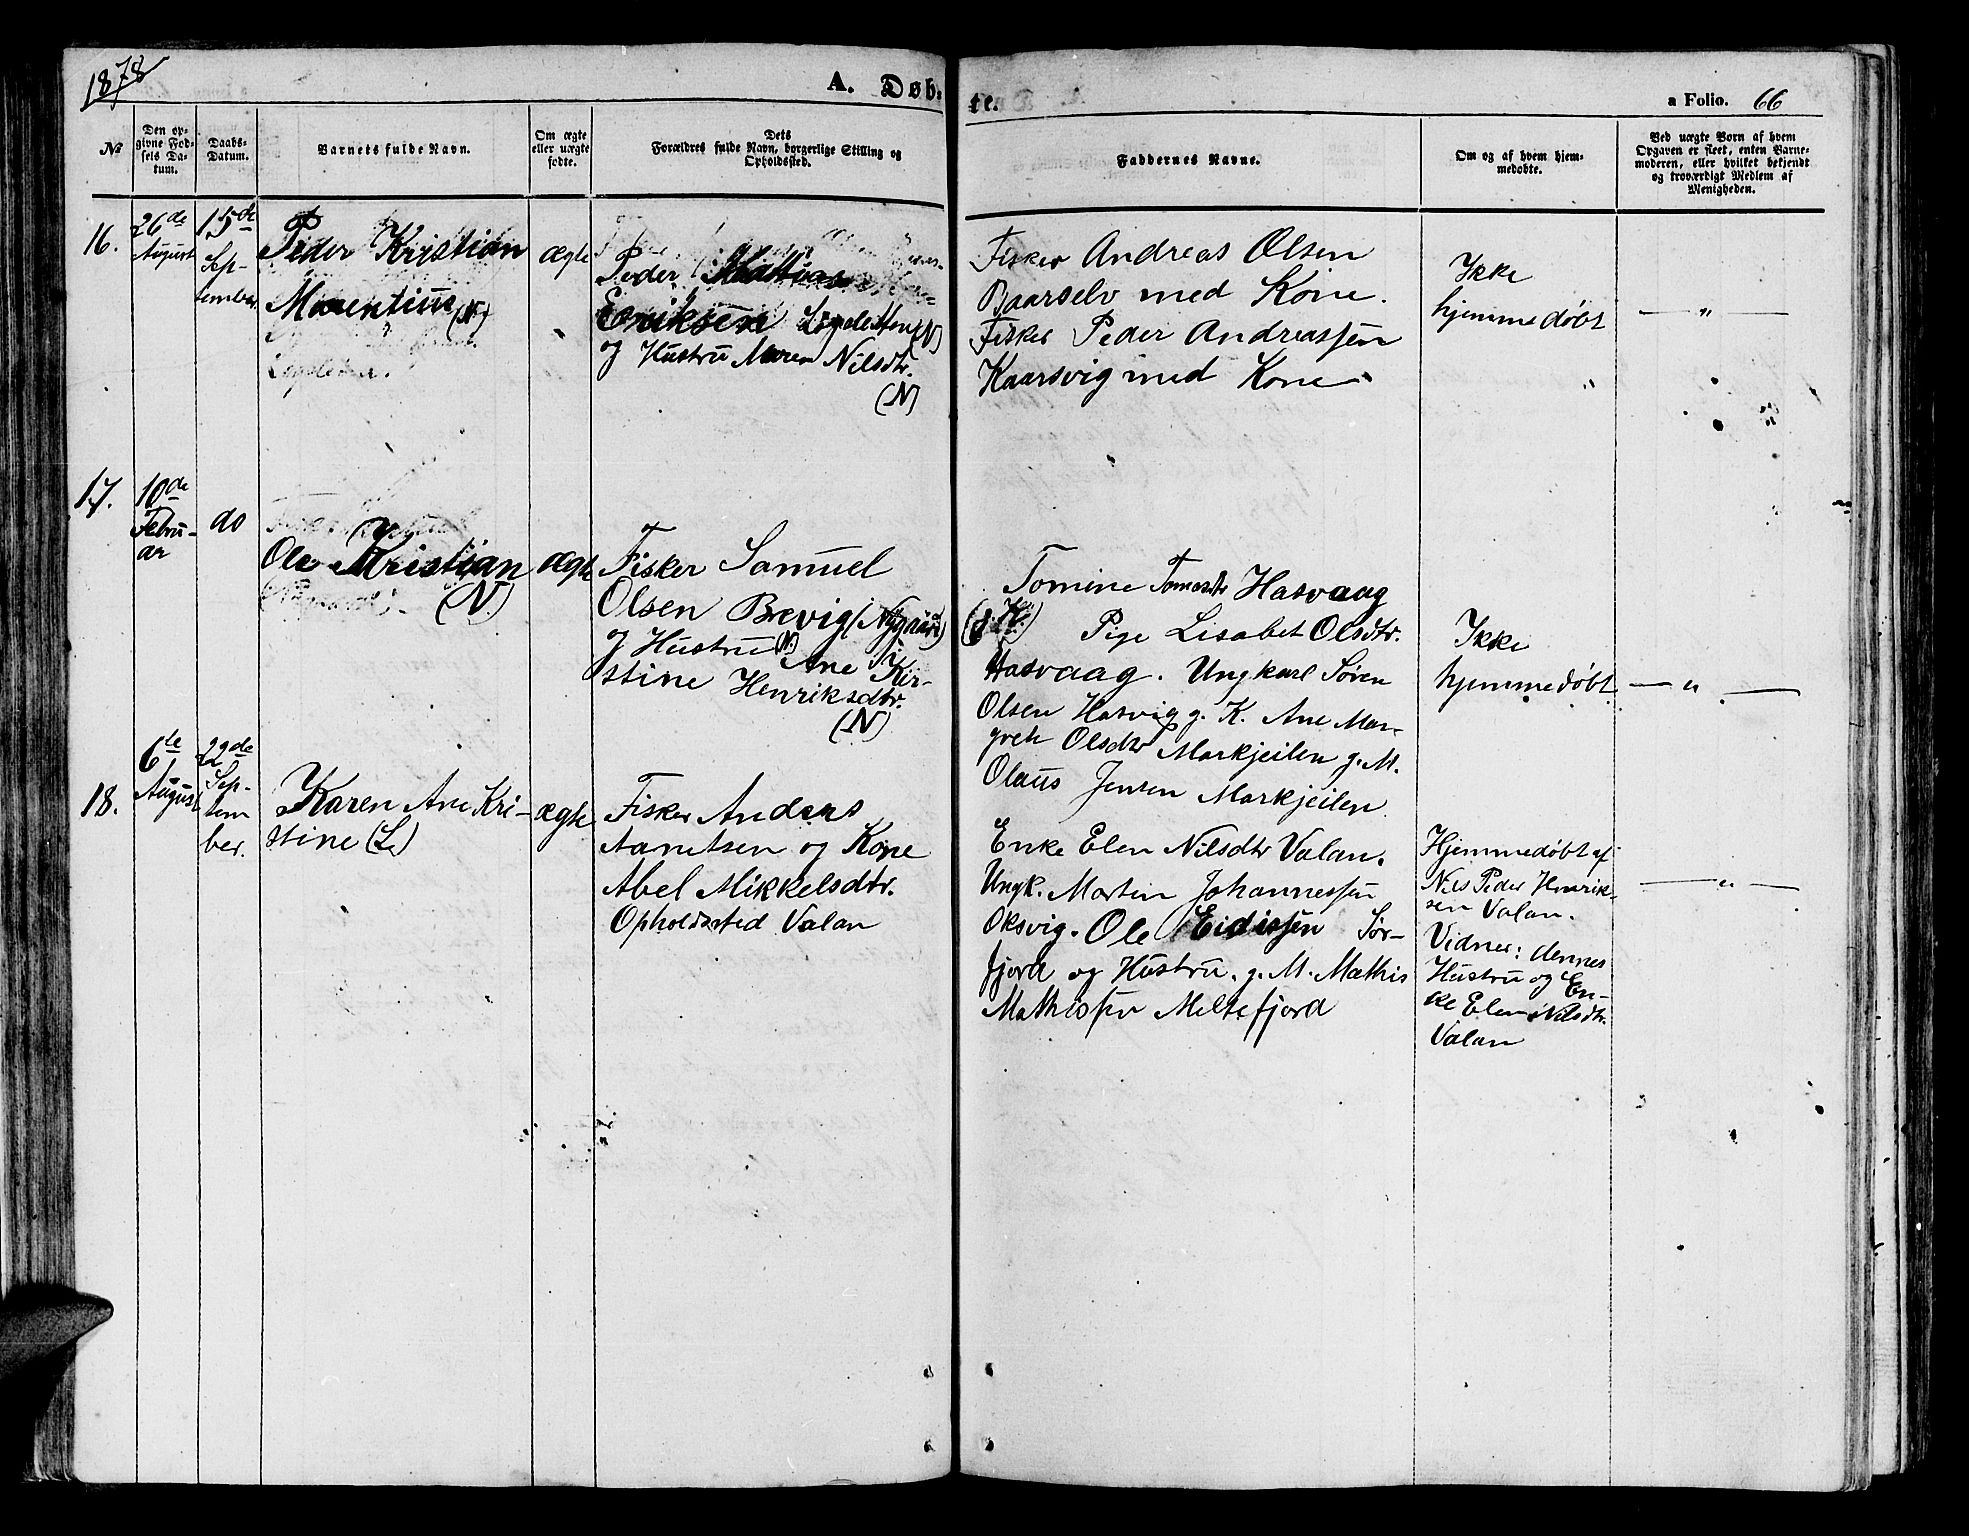 1878
A. Døb-
te.
a Folio. 66
No
Den op-
givne Fød-
sels Da-
tum.
Daabs-
Datum.
Barnets fulde Navn.
Om ægte
eller uægte
fødte.
Dets
Forældres fulde Navn, borgerlige Stilling og
Opholdssted.
Faddernes Navne.
Om og af hvem hjem-
medøbte.
Ved uægte Børn af hvem
Opgaven er skeet, enten Barne-
moderen, eller hvilket bekjendt
og troværdigt Medlem af
Menigheden.
16.
26de
August
15de
Sep-
tember
Peder Kristian
Morentius (N)
ægte
Peder Mathias
Eriksen (N)
og Hustru Maren Nilsdtr.
(N)
Fisker Andreas Olsen
Baarselv med Kone.
Fisker Peder Andreassen
Kaarsvig med Kone
Ikke
hjemmedøbt
— " —
"
17.
10de
Febru-
ar
do
Ole Kristian
(N)
ægte
Fisker Samuel
Olsen Brevig (Nygaard)
og Hustru (N) Ane Kir-
stine Henriksdtr.
(N)
Tomine Tomasdtr Hasvaag
Pige Lisabet Olsdtr.
Hasvaag. Ungkarl Søren
Olsen Hasvig g. K. Ane Mar-
greh Olsdtr Markjeilen g. M.
Olaus Jensen Markjeilen
Ikke
hjemmedøbt
— " —
18.
6te
August
22de
Sep-
tem
ber.
Karen Ane Kri-
stine (L)
ægte
Fisker Anders
Aanetsen og Kone
Abel Mikkelsdtr.
Opholdssted Valan
Enke Elen Nilsdtr Valan.
Ungk. Martin Johannessen
Oksvig. Ole Eidissen Sør-
fjord og Hustru. g. M. Mathis
Mathissen Meltefjord
Hjemmedøbt af
Nils Peder Henrik-
sen Valan.
Vidner: dennes
Hustru og En-
ke Elen Nilsdtr.
Valan
— " —